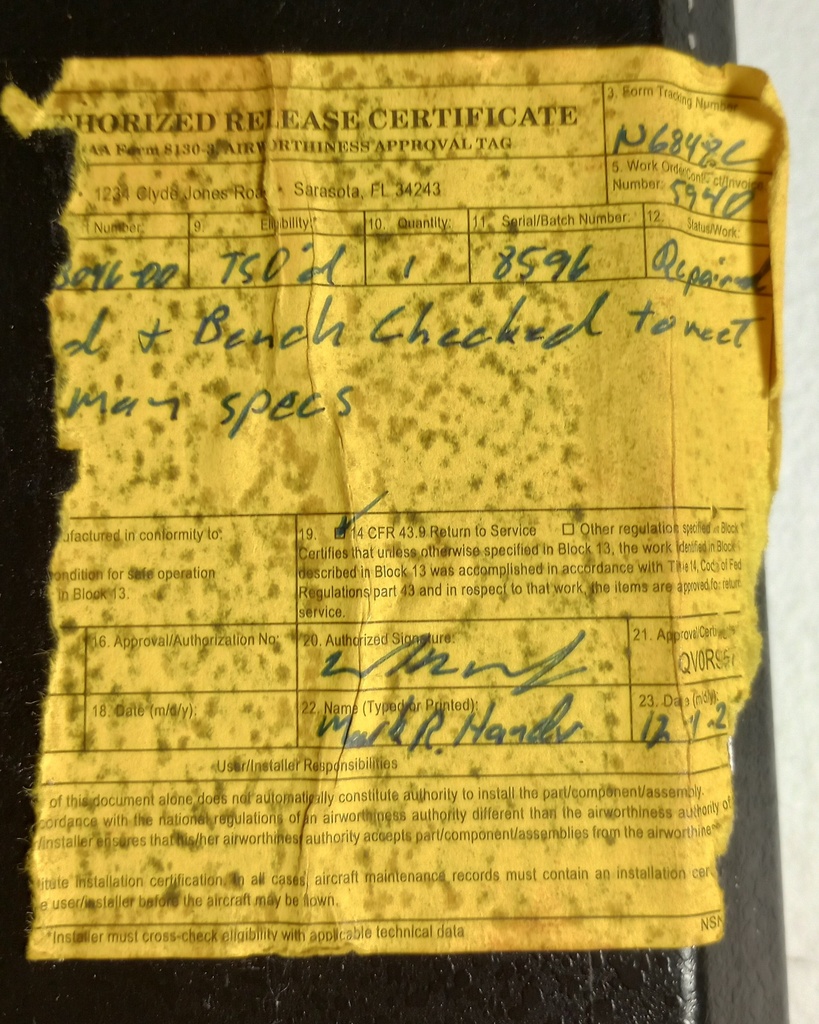 HORIZED RELEASE CERTIFICATE
AA Form 8130-3, AIRWORTHINESS APPROVAL TAG
3. Form Tracking Number
N6848C
1234 Clyde Jones Roa • Sarasota, FL 34243
5. Work Order/Contract/Invoice
Number: 5940
Number: 9. Eligibility:* 10. Quantity: 11. Serial/Batch Number: 12. Status/Work:
046-00 TSO'd 1 8596 Repaired
d + Bench Checked to meet
man specs
ufactured in conformity to:
ondition for safe operation
in Block 13.
19. 14 CFR 43.9 Return to Service Other regulation specified in Block
Certifies that unless otherwise specified in Block 13, the work identified in Block
described in Block 13 was accomplished in accordance with Title 14, Code of Fed
Regulations, part 43 and in respect to that work, the items are approved for return
service.
16. Approval/Authorization No: 20. Authorized Signature: 21. Approval/Certi
QV0R
18. Date (m/d/y): 22. Name (Typed or Printed): 23. Date (m/d/y):
Mark R. 12 1 2
User/Installer Responsibilities
of this document alone does not automatically constitute authority to install the part/component/assembly.
cordance with the national regulations of an airworthiness authority different than the airworthiness authority of
/installer ensures that his/her airworthiness authority accepts part/component/assemblies from the airworthine
itute installation certification. In all cases, aircraft maintenance records must contain an installation cer
e user/installer before the aircraft may be flown.
*Installer must cross-check eligibility with applicable technical data NSN